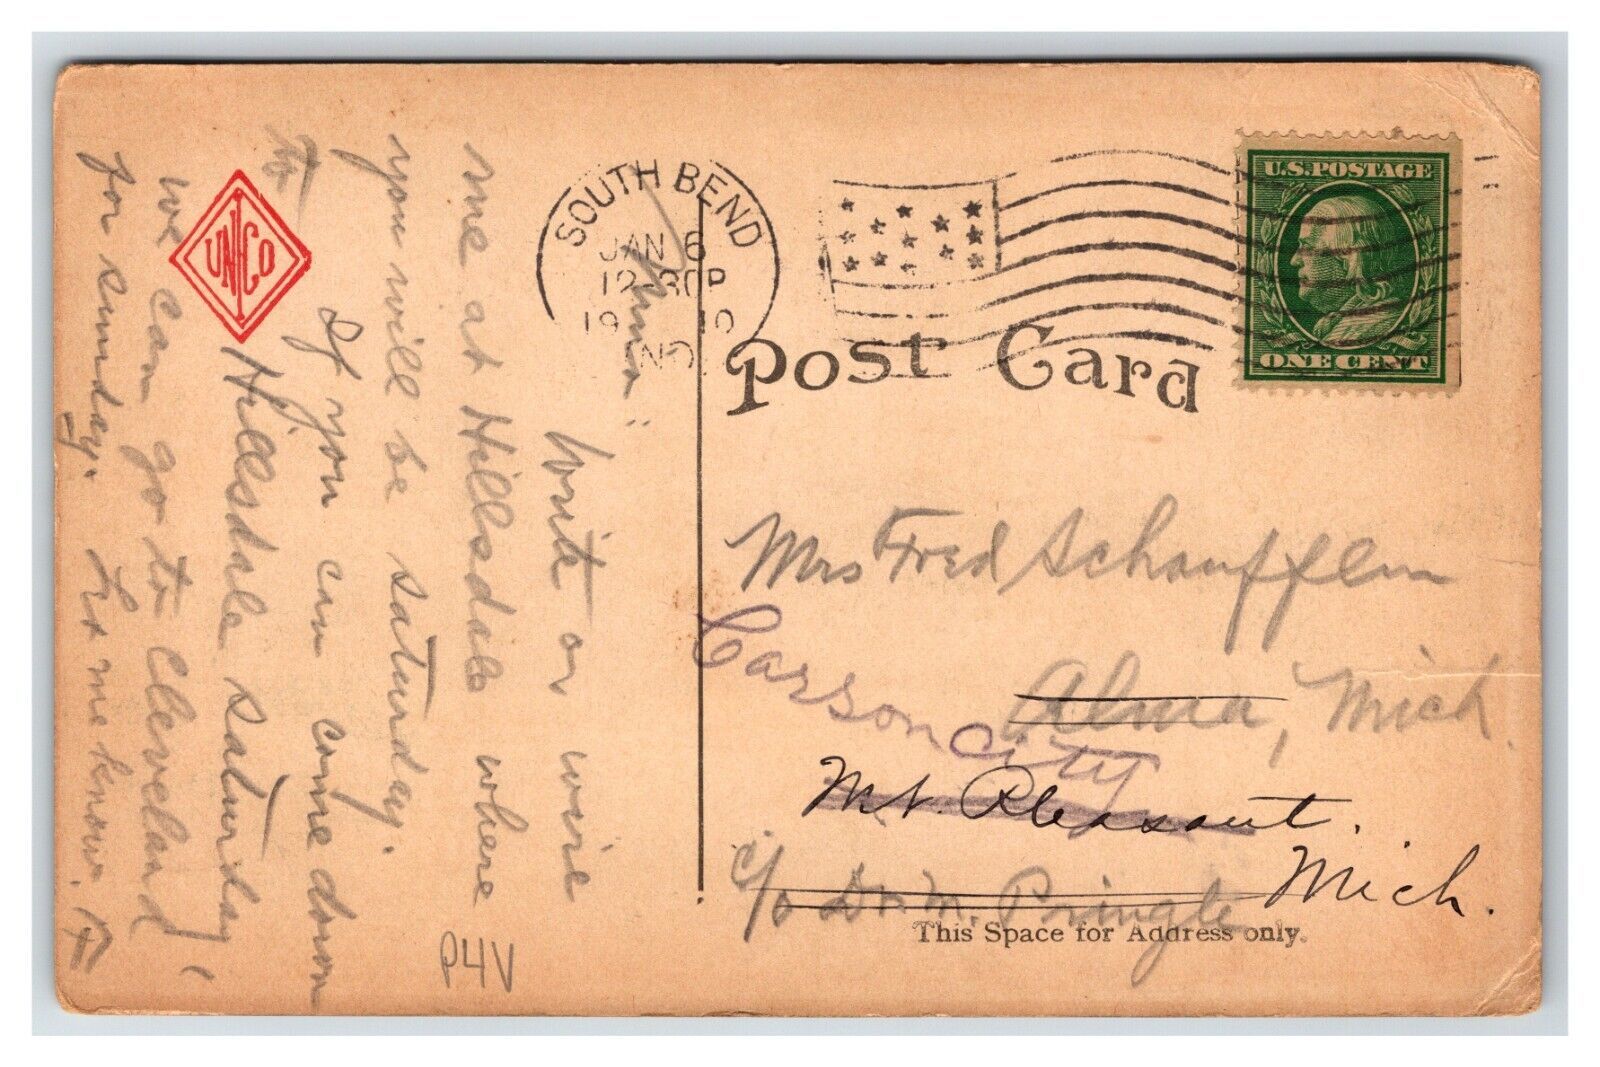 SOUTH BEND
JAN 6
12 30P
1910
IND.
U.S. POSTAGE
ONE CENT
Post Card
UNICO
write or wire
me at Hillsdale where
you will be saturday.
If you can come down
To Hillsdale saturday
we can go to Cleveland
for sunday. Let me know. F
P4V
Mrs Fred Schaufflen
Alma, Mich.
Carson City
Mt. Pleasant.
Mich.
c/o Dr. M. Pringle
This Space for Address only.